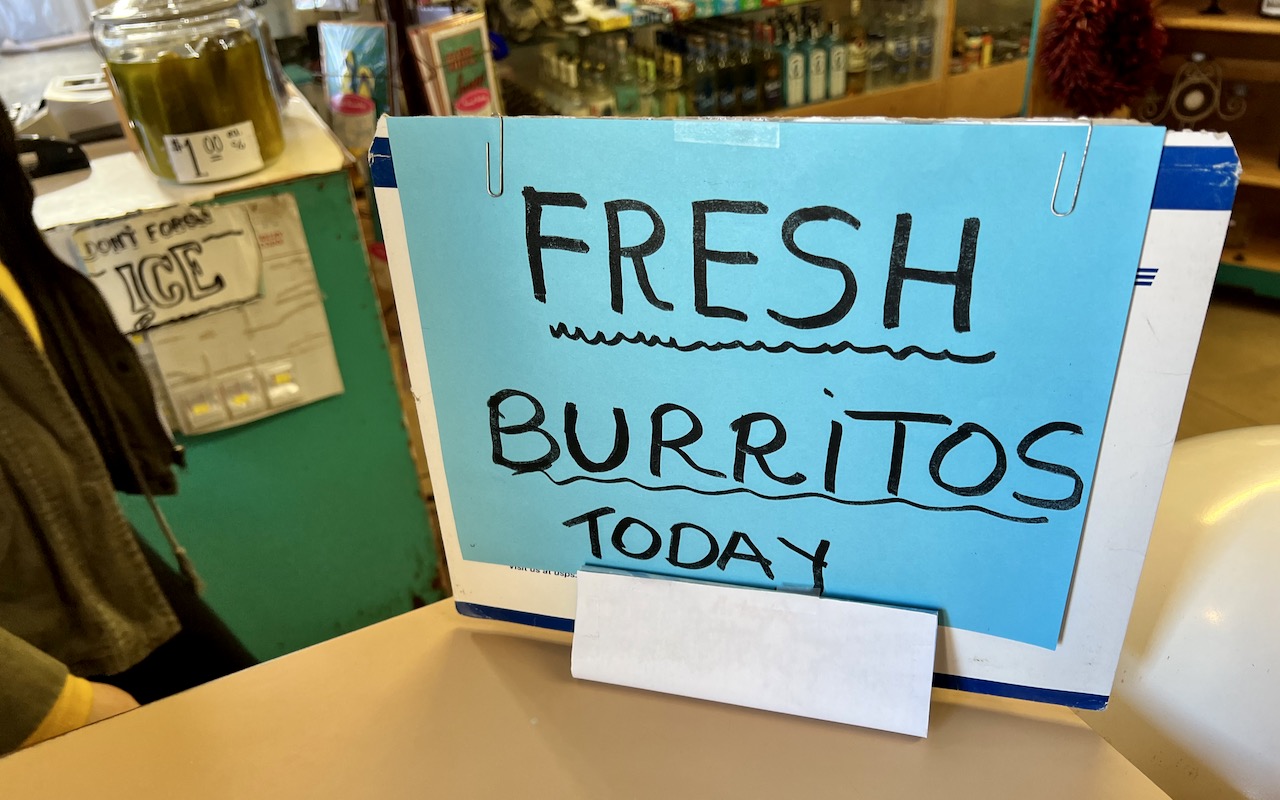 $1.00 ea.
DON'T FORGET
ICE
FRESH
BURRiTOS
TODAY
visit us at usps.